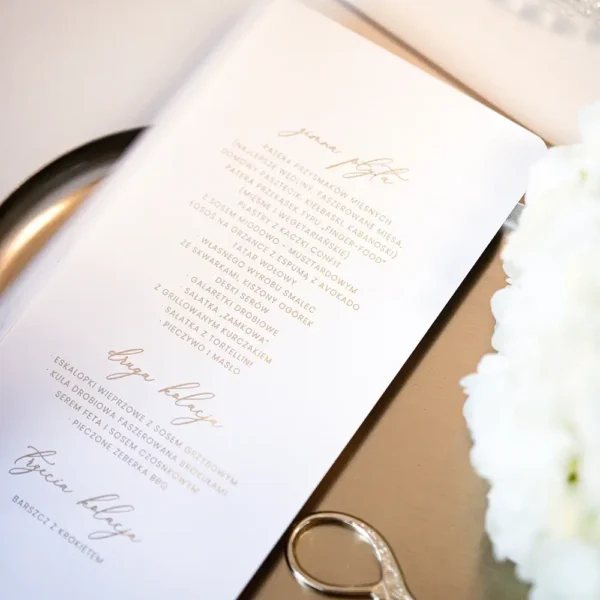 zimna płyta
· PATERA PRZYSMAKÓW MIĘSNYCH
(NAJLEPSZE WĘDLINY, FASZEROWANE MIĘSA,
DOMOWY PASZTECIK, KIEŁBASKI, KABANOSKI)
· PATERA PRZEKĄSEK TYPU „FINGER-FOOD"
(MIĘSNE I WEGETARIAŃSKIE)
· PLASTRY Z KACZKI CONFIT
Z SOSEM MIODOWO - MUSZTARDOWYM
· ŁOSOŚ NA GRZANCE Z ESPUMĄ Z AVOKADO
· TATAR WOŁOWY
· WŁASNEGO WYROBU SMALEC
ZE SKWARKAMI, KISZONY OGÓREK
· DESKI SERÓW
· GALARETKI DROBIOWE
· SAŁATKA „ZAMKOWA"
Z GRILLOWANYM KURCZAKIEM
· SAŁATKA Z TORTELLINI
· PIECZYWO I MASŁO
druga kolacja
· ESKALOPKI WIEPRZOWE Z SOSEM GRZYBOWYM
· KULA DROBIOWA FASZEROWANA BROKUŁAMI
SEREM FETA I SOSEM CZOSNKOWYM
· PIECZONE ŻEBERKA BBQ
trzecia kolacja
BARSZCZ Z KROKIETEM